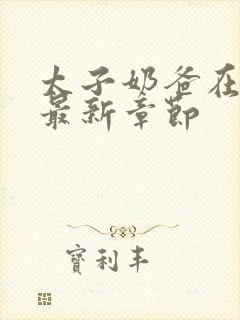 太子奶爸在
最新章节
寶利丰